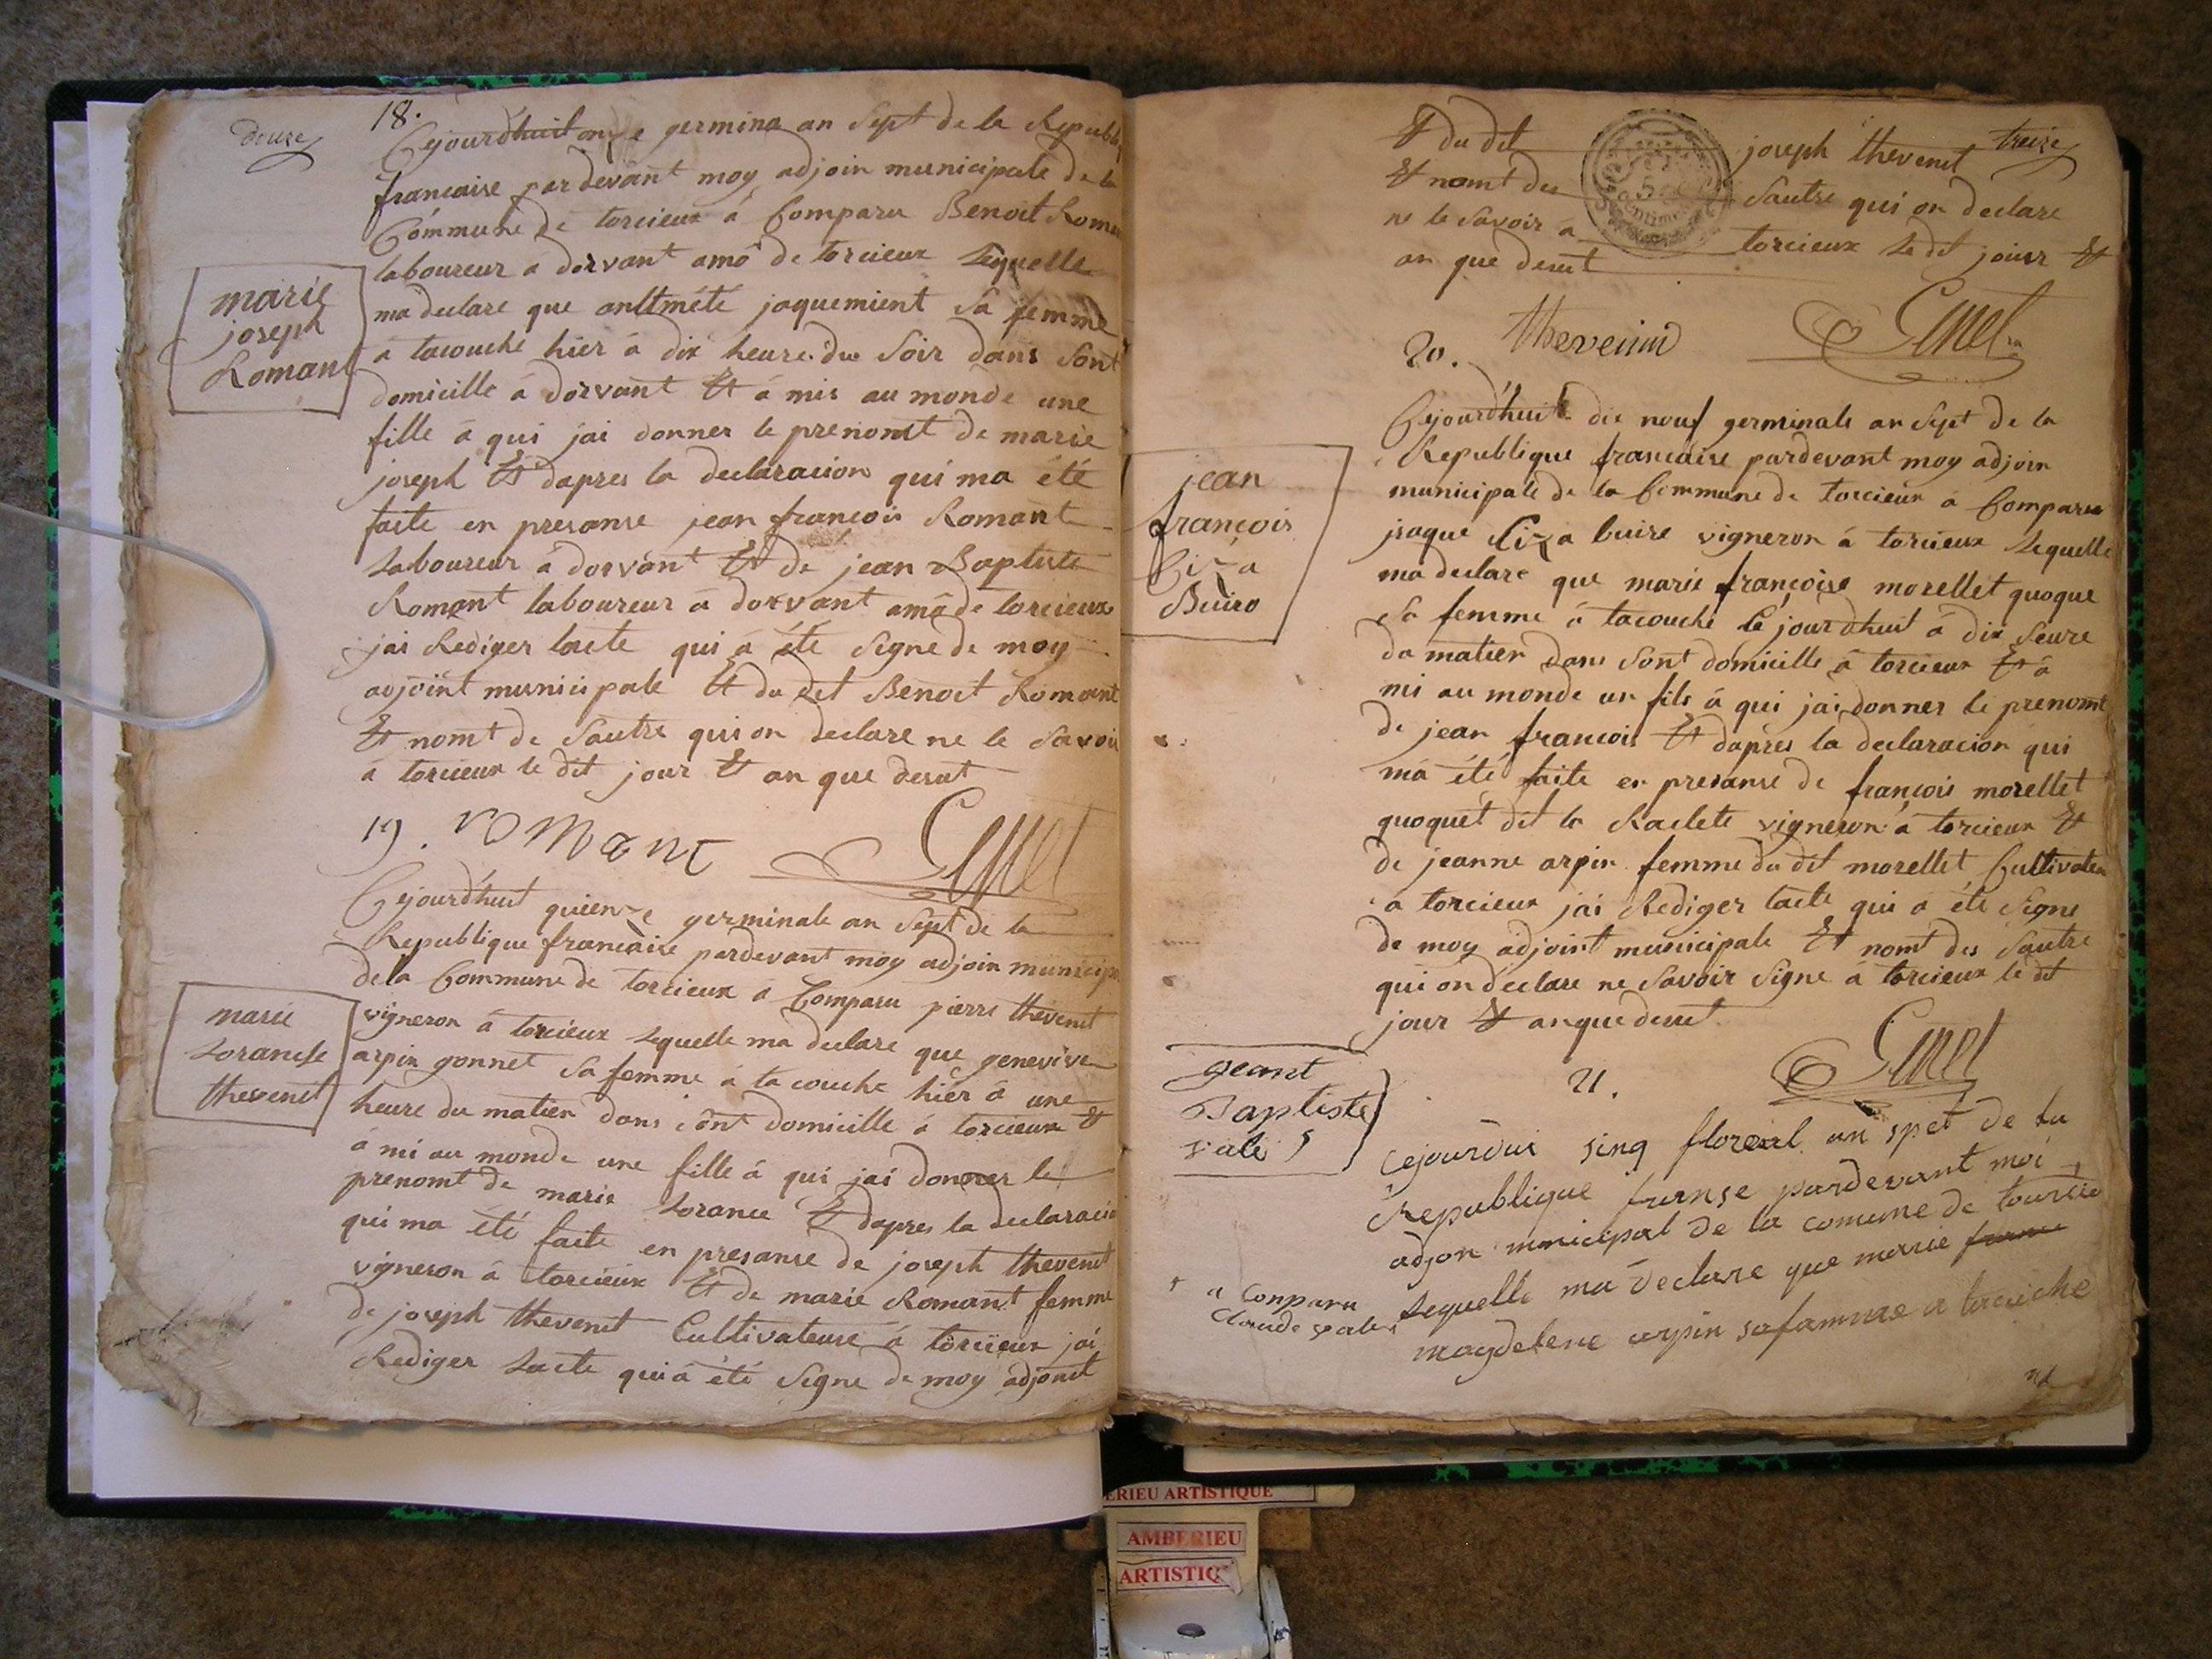 douze
18.
Cejourdhuit onze germina an Sept de la Republi
francaise pardevant moy adjoin municipale de la
Commune de torcieux á Comparu Benoit Roman
laboureur a dorvant amô de torcieux Lequelle
ma declare que jaquemient sa femme
á tacouché hier á dix heure du Soir dans Sont
domicille á dorvant Et á mis au monde une
fille á qui jai donner le prenomt de marie
joseph Et dapres la declaracion qui ma été
faite en presanse jean francois Romant
Laboureur á dorvant Et de jean Baptiste
Romant laboureur á dorvant amô de torcieux
jai Rediger lacte qui á été Signe de moy
adjoint municipale Et du dit Benoit Romant
Et nomt de Sautre qui on declare ne le Savoir
a torcieux le dit jour Et an que desut
marie
joseph
Romant
19. romant
Cejourdhuit quienze germinale an Sept de la
Republique francaise pardevant moy adjoin municipa
dela Commune de torcieux a Comparu pierre thevenet
vigneron á torcieux Lequelle ma declare que genevive
arpin gonnet Sa femme á ta couche hier á une
heure du matien dans sont domicille á torcieux Et
á mi au monde une fille á qui jai donner le
prenomt de marie Lorance Et dapres la declaracio
qui ma été faite en presanse de joseph thevenet
vigneron á torcieux Et de marie Romant femme
de joseph thevenet Cultivateuse á torcieux jai
Rediger Lacte qui á été Signe de moy adjoint
marie
Loranse
thevenet
treize
Et du dit joseph thevenet
Et nomt des Sautre qui on declare
ne le Savoir a torcieux Le dit jour Et
an que desut
20.
Cejourdhuit dix nouf germinale an Sept de la
Republique francaise pardevant moy adjoin
municipale de la Commune de torcieux a Comparu
jaque Ciza buire vigneron á torcieux Lequelle
ma declare que marie françoise morellet quoque
Sa femme á tacouché Cejourdhuit á dix Seure
du matien dans Sont domicille á torcieux Et á
mi au monde un fils á qui jai donner le prenomt
de jean francois Et dapres la declaracion qui
ma été faite en presanse de françois morellet
quoquet dit la Raclete vigneron á torcieux Et
de jeanne arpin femme du dit morellet Cultivateu
a torcieux jai Rediger lacte qui a été Signe
de moy adjoint municipale Et nomt des Sautre
qui on declare ne Savoir Signe á torcieux le dit
jour Et an que desut
jean
françois
Ciza
Buiro
21.
Cejourdui sinq floreal an spet de la
Republique franse pardevant moi +
adjon municipal de la comune de
Lequelle ma declare que marie franse
magdelene arpin sa famme a tacuche
geant
Baptiste
+ a Conparu
Claude
AMBERIEU ARTISTIQUE
AMBERIEU
ARTISTIQ